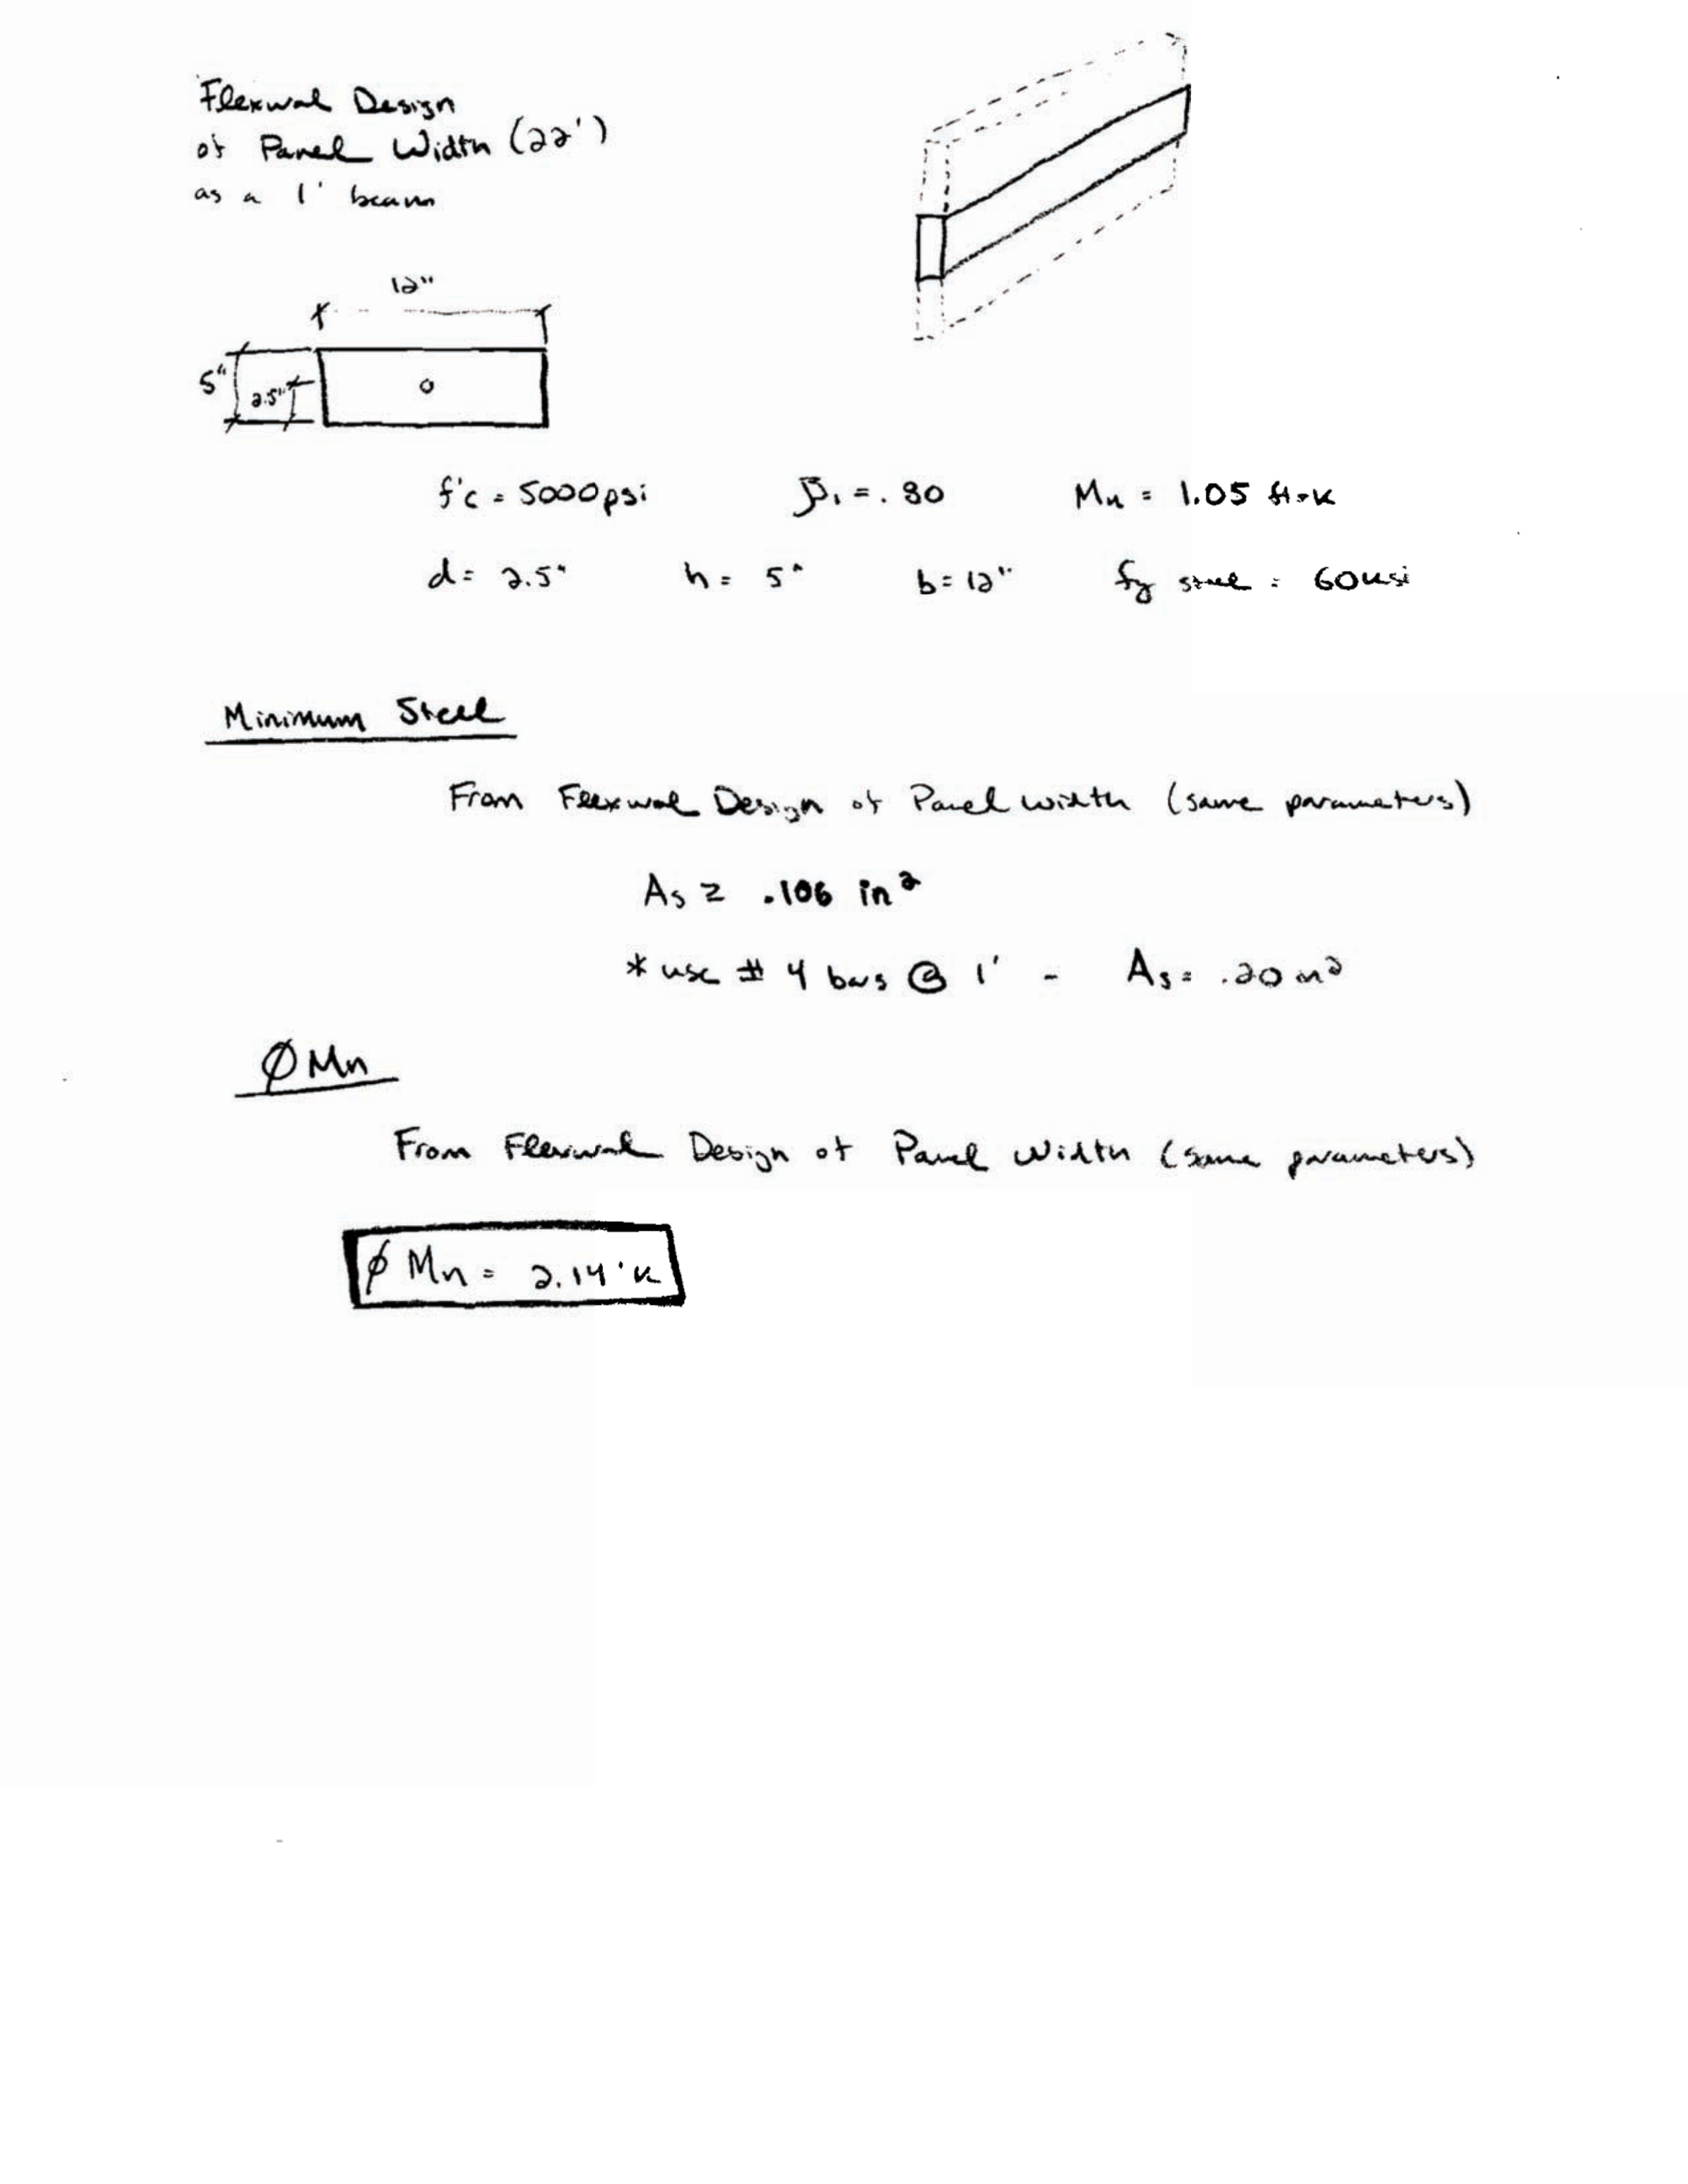 Flexural Design
of Panel Width (22')
as a 1' beam
12"
5"
2.5"
f'c = 5000psi β₁ = .80 Mu = 1.05 ft-k
d = 2.5" h = 5" b = 12" fy steel = 60ksi
Minimum Steel
From Flexural Design of Panel Width (same parameters)
As ≥ .106 in²
* use # 4 bars @ 1' - As = .20 in²
ØMn
From Flexural Design of Panel Width (same parameters)
ϕ Mn = 2.14 'k